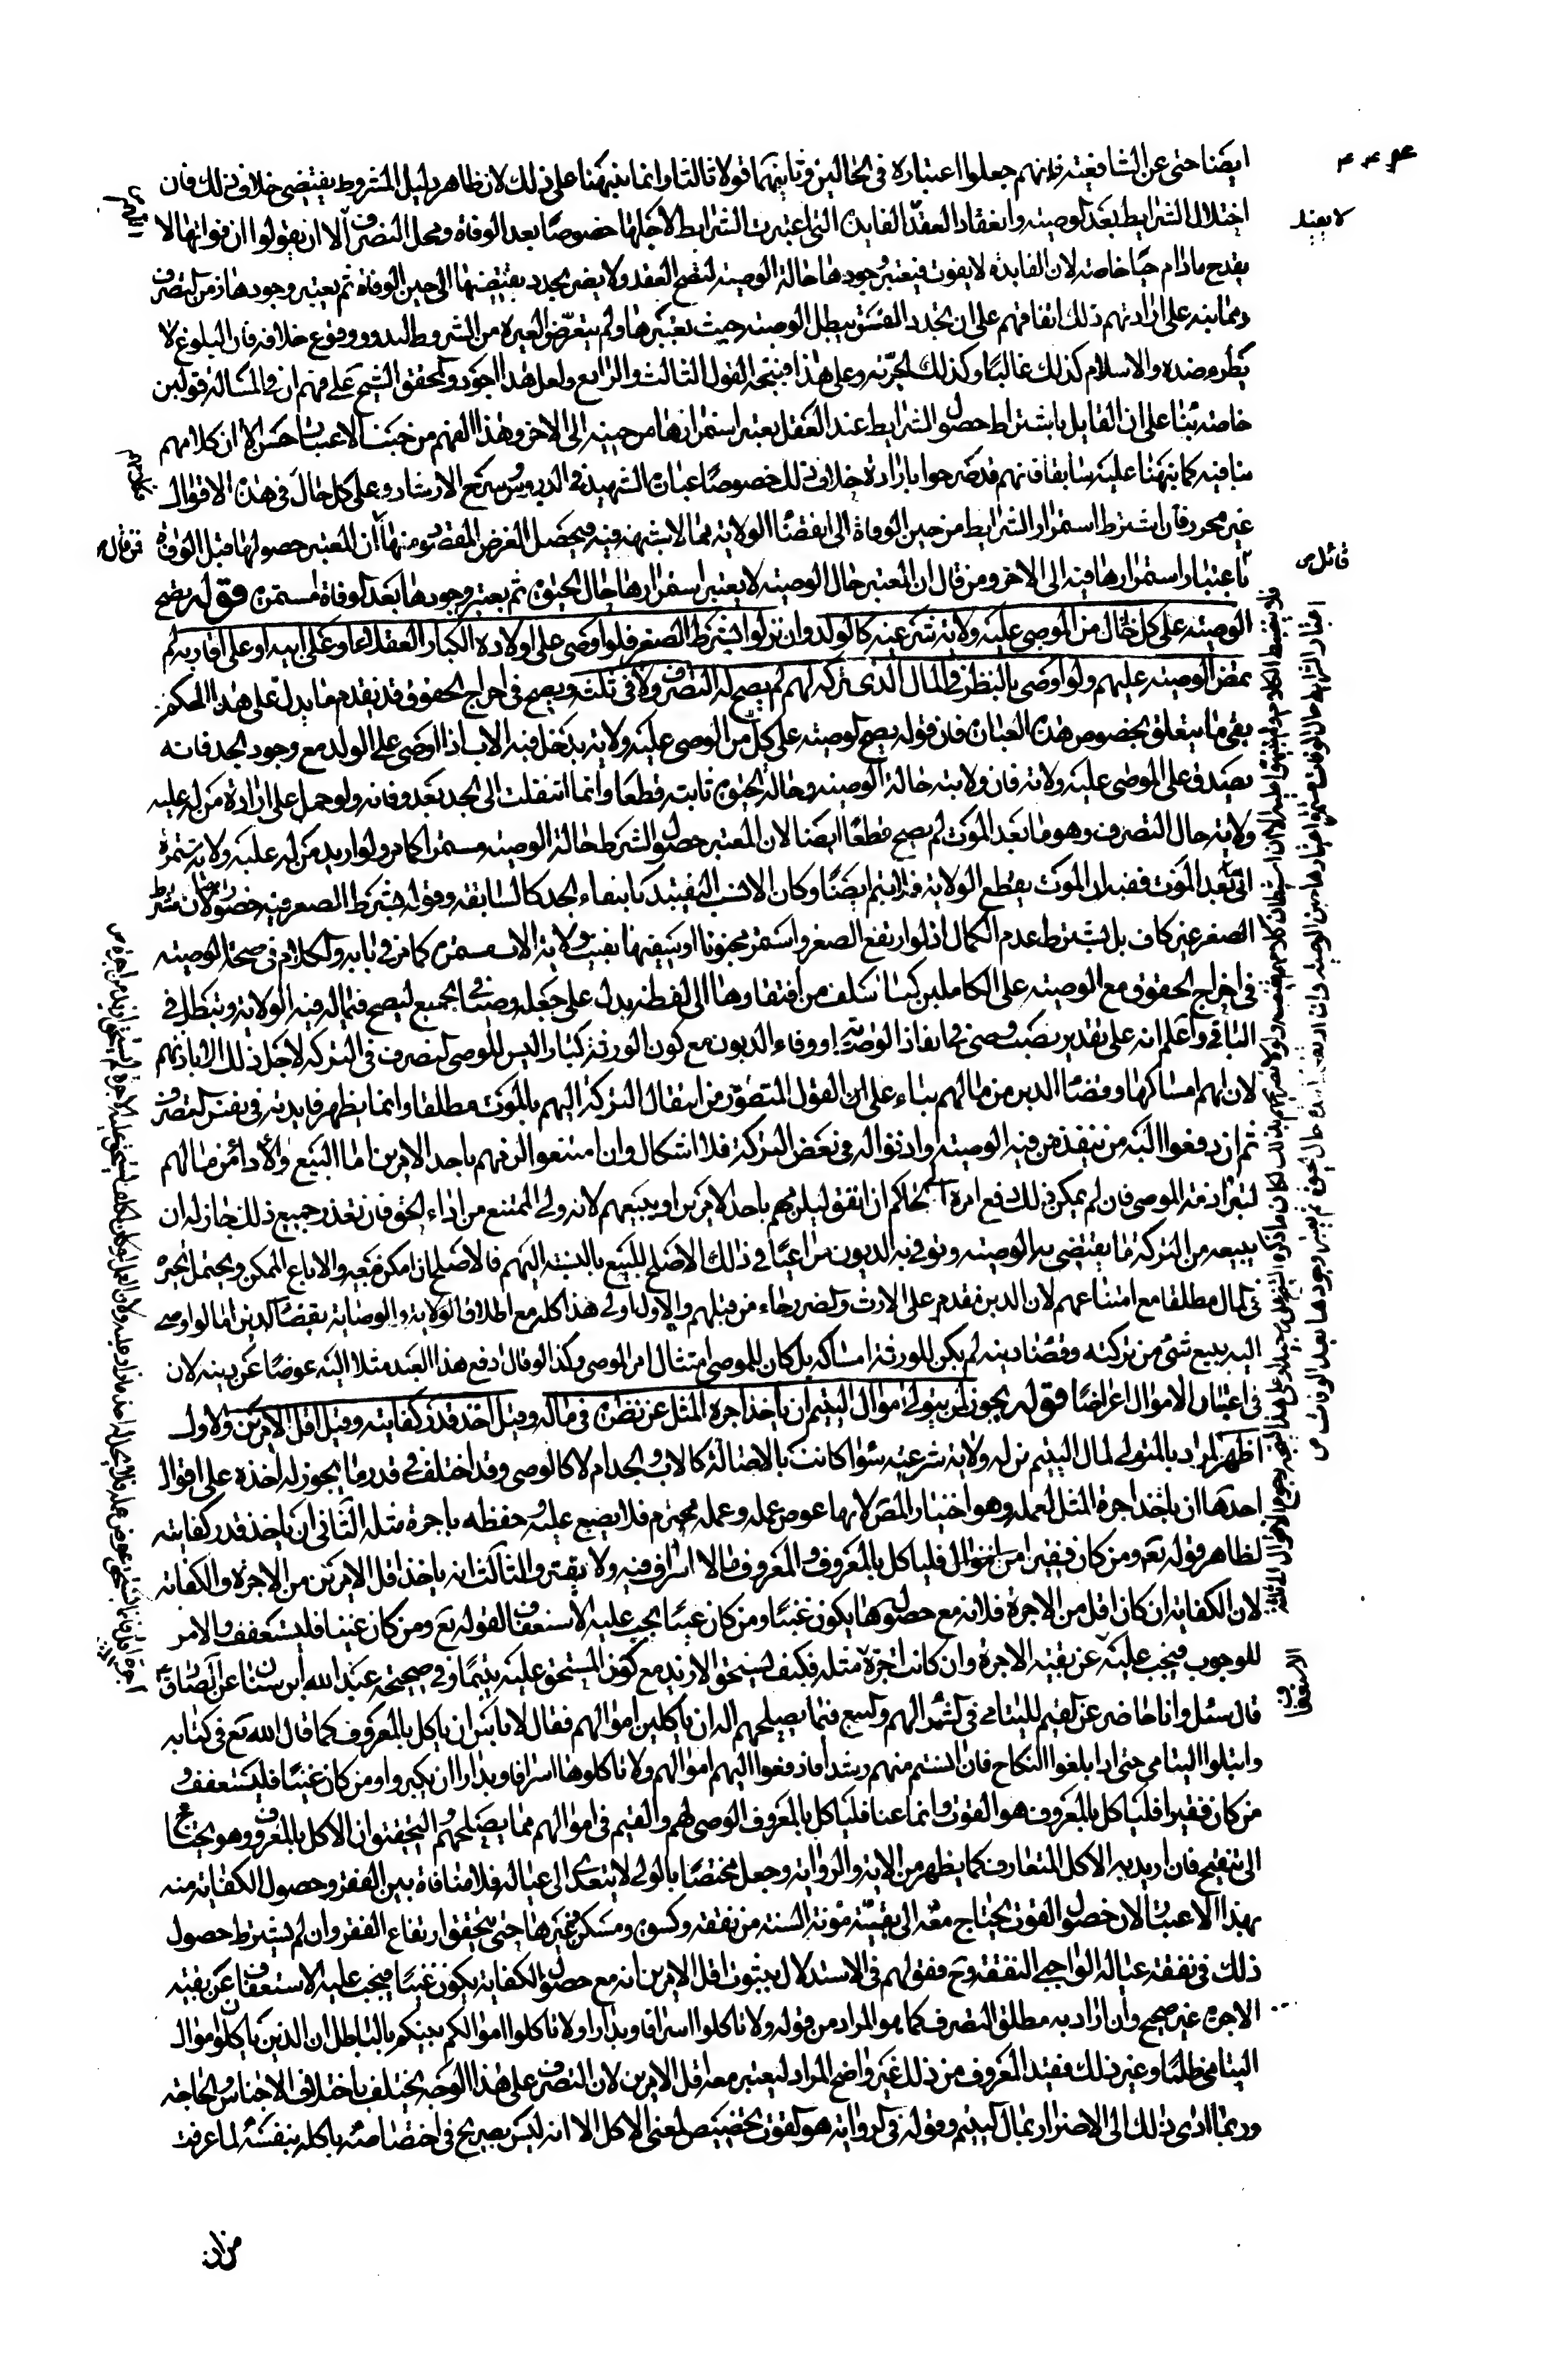 ايضا حتى عن الشافعية فانهم جعلوا اعتباره في الحالين وتابينهما قولا ثالثا وانما نبهنا على ذلك لان ظاهر دليل المشروط يقتضى خلاف ذلك فان
اختلال الشرايط بعد الوصية وانعقاد العقد الفايدة التي اعتبرت الشرايط لاجلها خصوصا بعد الوفاة ومحل التصرف الا ان يقولوا ان فواتها لا
يقدح ما دام حيا خاصة لان الفايدة لا يفوت فيعتبر وجودها حالة الوصية لتصح العقد ولا يضر تجدد نقيضها الى حين الوفاة ثم يعتبر وجودها زمن التصرف
ومما ينبه على ارادتهم ذلك اتفاقهم على ان تجدد الفسق يبطل الوصية حيث نعتبرها ولم يتعرض لغيره من الشروط لندور وقوع خلافه فان البلوغ لا
يطرء ضده والاسلام كذلك غالبا وكذلك الحرية وعلى هذا فيتجه القول الثالث والرابع ولعل هذا اجود والمحقق الشيخ على فهم ان في المسالة قولين
خاصة بناء على ان القايل باشتراط حصول الشرايط عند العقد يعتبر استمرارها من حينه الى الاخر وهذا الفهم من حيث الاعتبار حسن الا ان كلامهم
ينافيه كما نبهنا عليه سابقا فانهم قد صرحوا بارادة خلاف ذلك خصوصا عبارة الشهيد في الدروس وشرح الارشاد وعلى كل حال في هذه الاقوال
غير محرر فان اشترط استمرار الشرايط من حين الوفاة الى انقضاء الولاية مما لا شبهة فيه فيحصل الغرض المقصود منها ان المعتبر حصولها قبل الوفاة
باعتبار استمرارها فيه الى الاخر ومن قال ان المعتبر حال الوصية لا يعتبر استمرارها حال الحيوة ثم يعتبر وجودها بعد الوفاة مستمرة قوله يصح
الوصية على كل حال من الموصى عليه ولاية شرعية كالولد وان نزلوا بشرط الصغر فلو اوصى على اولاده الكبار العقلاء او على ابيه او على اقاربه لم
تمض الوصية عليهم ولو اوصى بالنظر في المال الذي تركه لهم لم يصح له التصرف ولا في ثلثه ويصح في اخراج الحقوق قد تقدم ما يدل على هذا الحكم
بقي ما يتعلق بخصوص هذه العبارة فان قوله يصح الوصية على كل من الموصى عليه ولاية يدخل فيه الاب اذا اوصى على الولد مع وجود الجد فانه
يصدق على الموصى عليه ولاية فان ولايته حالة الوصية وحالة الحيوة ثابتة قطعا وانما انتقلت الى الجد بعد وفاته ولو حمل على ارادة من له عليه
ولاية حال التصرف وهو ما بعد الموت لم يصح قطعا ايضا لان المعتبر حصول الشرط حالة الوصية مستمرا كما مر ولو اريد من له عليه ولاية مستمرة
الى بعد الموت ففيه ان الموت يقطع الولاية فلا يتم ايضا وكان الانسب التقييد بانتفاء الجد كالسابقة وقوله بشرط الصغر فيه قصور لان شرط
الصغر غير كاف بل يشترط عدم الكمال اذ لو ارتفع الصغر واستمر مجنونا او سفيها بقيت ولاية الاب مستمرة كما مر في بابه والكلام في صحة الوصية
في اخراج الحقوق مع الوصية على الكاملين كما سلف من افتقارها الى لفظ يدل على جعله وصيا في الجميع ليصح فيما له فيه الولاية وتبطل في
الباقي واعلم انه على تقدير نصب وصي في انفاذ الوصية او وفاء الديون مع كون الورثة كبارا ليس للوصي التصرف في التركة لاجل ذلك الا باذنهم
لان لهم امساكها وقضاء الدين من مالهم بناء على ان القول المنصور من انتقال التركة اليهم بالموت مطلقا وانما يظهر فايدته في نفس التصرف
ثم ان دفعوا اليه من تنفذ من فيه الوصية واذنوا له في بعض التركة فلا اشكال وان امتنعوا الزمهم باحد الامرين اما البيع والاداء من مالهم
لتبرأ ذمة الموصي فان لم يمكن ذلك رفع امره الى الحاكم ان اتفق ليلزمهم باحد الامرين او يبيعهم لانه ولي الممتنع من اداء الحق فان تعذر جميع ذلك جاز له ان
يبيعه من التركة ما يقتضي به الوصية وتوفي به الديون مراعيا في ذلك الاصلح للبيع بالنسبة اليهم فالاصلح ان امكن منعه والا باع الممكن ويحتمل تخيره
في المال مطلقا مع امتناعهم لان الدين مقدم على الارث والضرر جاء من قبلهم والاول اولى هذا كله مع اطلاق الولاية والوصاية بقضاء الدين اما لو اوصى
اليه ببيع شئ من تركته وقضاء دينه لم يكن للورثة امساكه بل كان للوصي امتثال امر الموصي وكذا لو قال ادفع هذا العبد مثلا اليه عوضا عن دينه لان
في اعتبار الاموال اغراضا قوله يجوز لمن يتولى اموال اليتيم ان ياخذ اجرة المثل عن نظره في ماله وقيل ياخذ قدر كفايته وقيل اقل الامرين والاول
اظهر المراد بالمتولى لمال اليتيم من له ولاية شرعية سواء كانت بالاصالة كالاب والجد ام لا كالوصي وقد اختلف في قدر ما يجوز له اخذه على اقوال
احدها ان ياخذ اجرة المثل لعمله وهو اختيار المص لانها عوض عمله وعمله محترم فلا يضيع عليه وحفظه باجرة مثله الثاني ان ياخذ قدر كفايته
لظاهر قوله تع ومن كان فقيرا فلياكل بالمعروف والمعروف ما لا اسراف فيه ولا يقتر والثالث انه ياخذ اقل الامرين من الاجرة والكفاية
لان الكفاية ان كان اقل من الاجرة فلانه مع حصولها يكون غنيا ومن كان غنيا يجب عليه الاستعفاف لقوله تع ومن كان غنيا فليستعفف والامر
للوجوب فيجب عليه عن بقية الاجرة وان كانت اجرة مثله فكيف يستحق الازيد مع كون المستحق عليه يتيما وفي صحيحة عبد الله ابن سنان عن الصادق
قال سئل وانا حاضر عن القيم لليتامى في الشراء لهم والبيع فيما يصلحهم اله ان ياكل من اموالهم فقال لا باس ان ياكل بالمعروف كما قال الله تع في كتابه
وابتلوا اليتامى حتى اذا بلغوا النكاح فان انستم منهم رشدا فادفعوا اليهم اموالهم ولا تاكلوها اسرافا وبدارا ان يكبروا ومن كان غنيا فليستعفف و
من كان فقيرا فلياكل بالمعروف هو القوت وانما عنا فلياكل بالمعروف الوصي لهم والقيم في اموالهم مما يصلحهم والتحقيق ان الاكل بالمعروف وهو يحتاج
الى تنقيح فان اريد به الاكل المتعارف كما يظهر من الاية والرواية وجعل مختصا بالولي لا يتعدى الى عياله فلا منافاة بين الفقر وحصول الكفاية منه
بهذا الاعتبار لان حصول القوت يحتاج معه الى بقية مؤنة السنة من نفقة وكسوة ومسكن وغيرها حتى يتحقق ارتفاع الفقر وان لم يشترط حصول
ذلك في نفقة عياله الواجبي النفقة وح فقولهم في الاستدلال بثبوت اقل الامرين انه مع حصول الكفاية يكون غنيا فيجب عليه الاستعفاف عن بقية
الاجرة غير صحيح وان اراد به مطلق التصرف كما هو المراد من قوله ولا تاكلوا اسرافا وبدارا ولا تاكلوا اموالكم بينكم بالباطل ان الذين ياكلون اموال
اليتامى ظلما وغير ذلك فقيد المعروف من ذلك غير واضح المراد ليعتبر معه اقل الامرين لان التصرف على هذا الوجه يختلف باختلاف الاجناس والحاجة
وربما ادى ذلك الى الاضرار بمال اليتيم وقوله في الرواية هو القوت تخصيص لمعنى الاكل الا انه ليس بصريح في اختصاصه باكله بنفسه لما عرفت
من ان